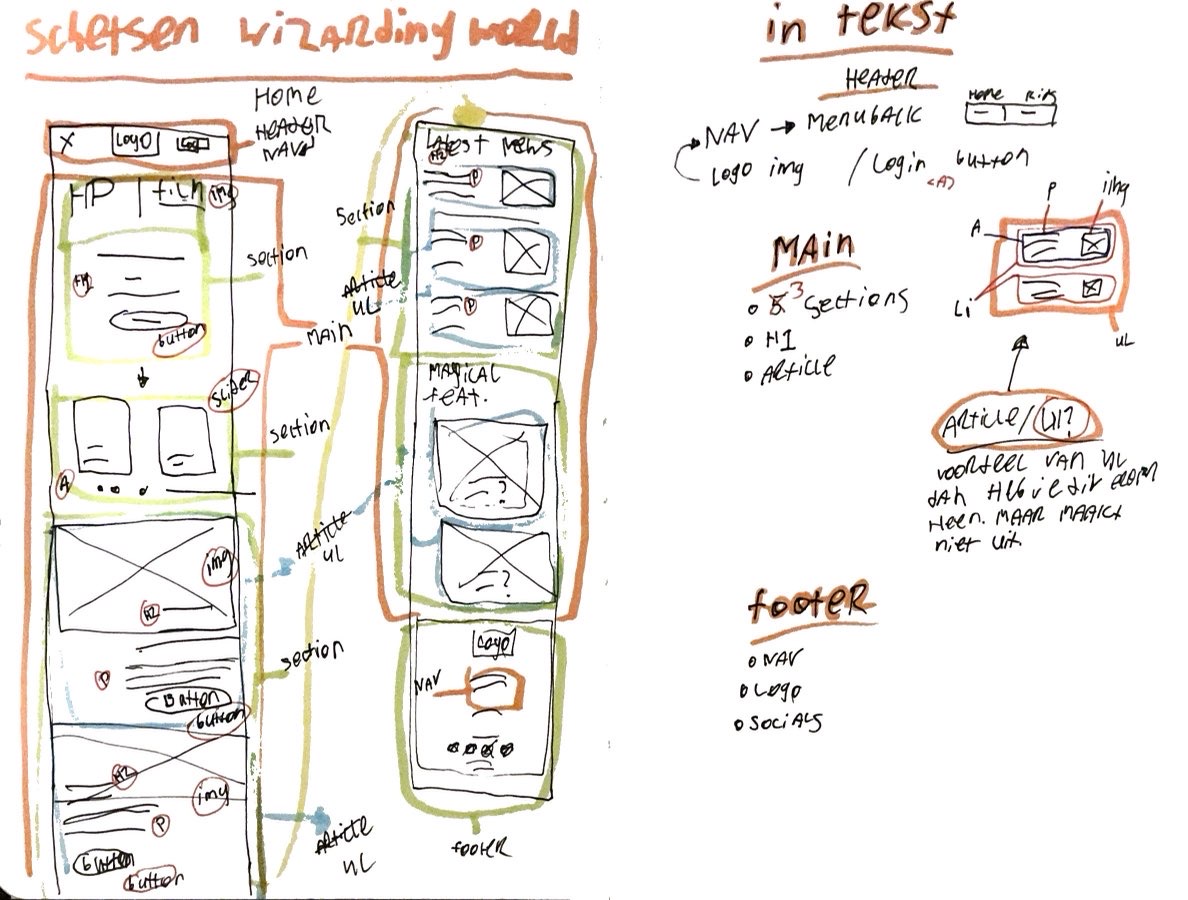 schetsen wizarding world
Home
HEADER
NAV
X
Logo
HP | film
img
section
H1
button
MAin
slider
section
A
img
Article
UL
H2
section
P
Button
button
H2
img
P
Article
UL
button
button
Latest News
H2
P
Section
P
Article
UL
P
MAGICAL
feat.
?
?
Logo
NAV
footer
in tekst
HEADER
NAV → Menubalk
Home
Logo img / Login button
<A>
MAin
3 sections
H1
Article
P
img
A
Li
UL
Article/Ul?
voordeel van UL
dan heb je dit eromheen. MAAR MAAKT
niet uit
footer
NAV
Logo
Socials